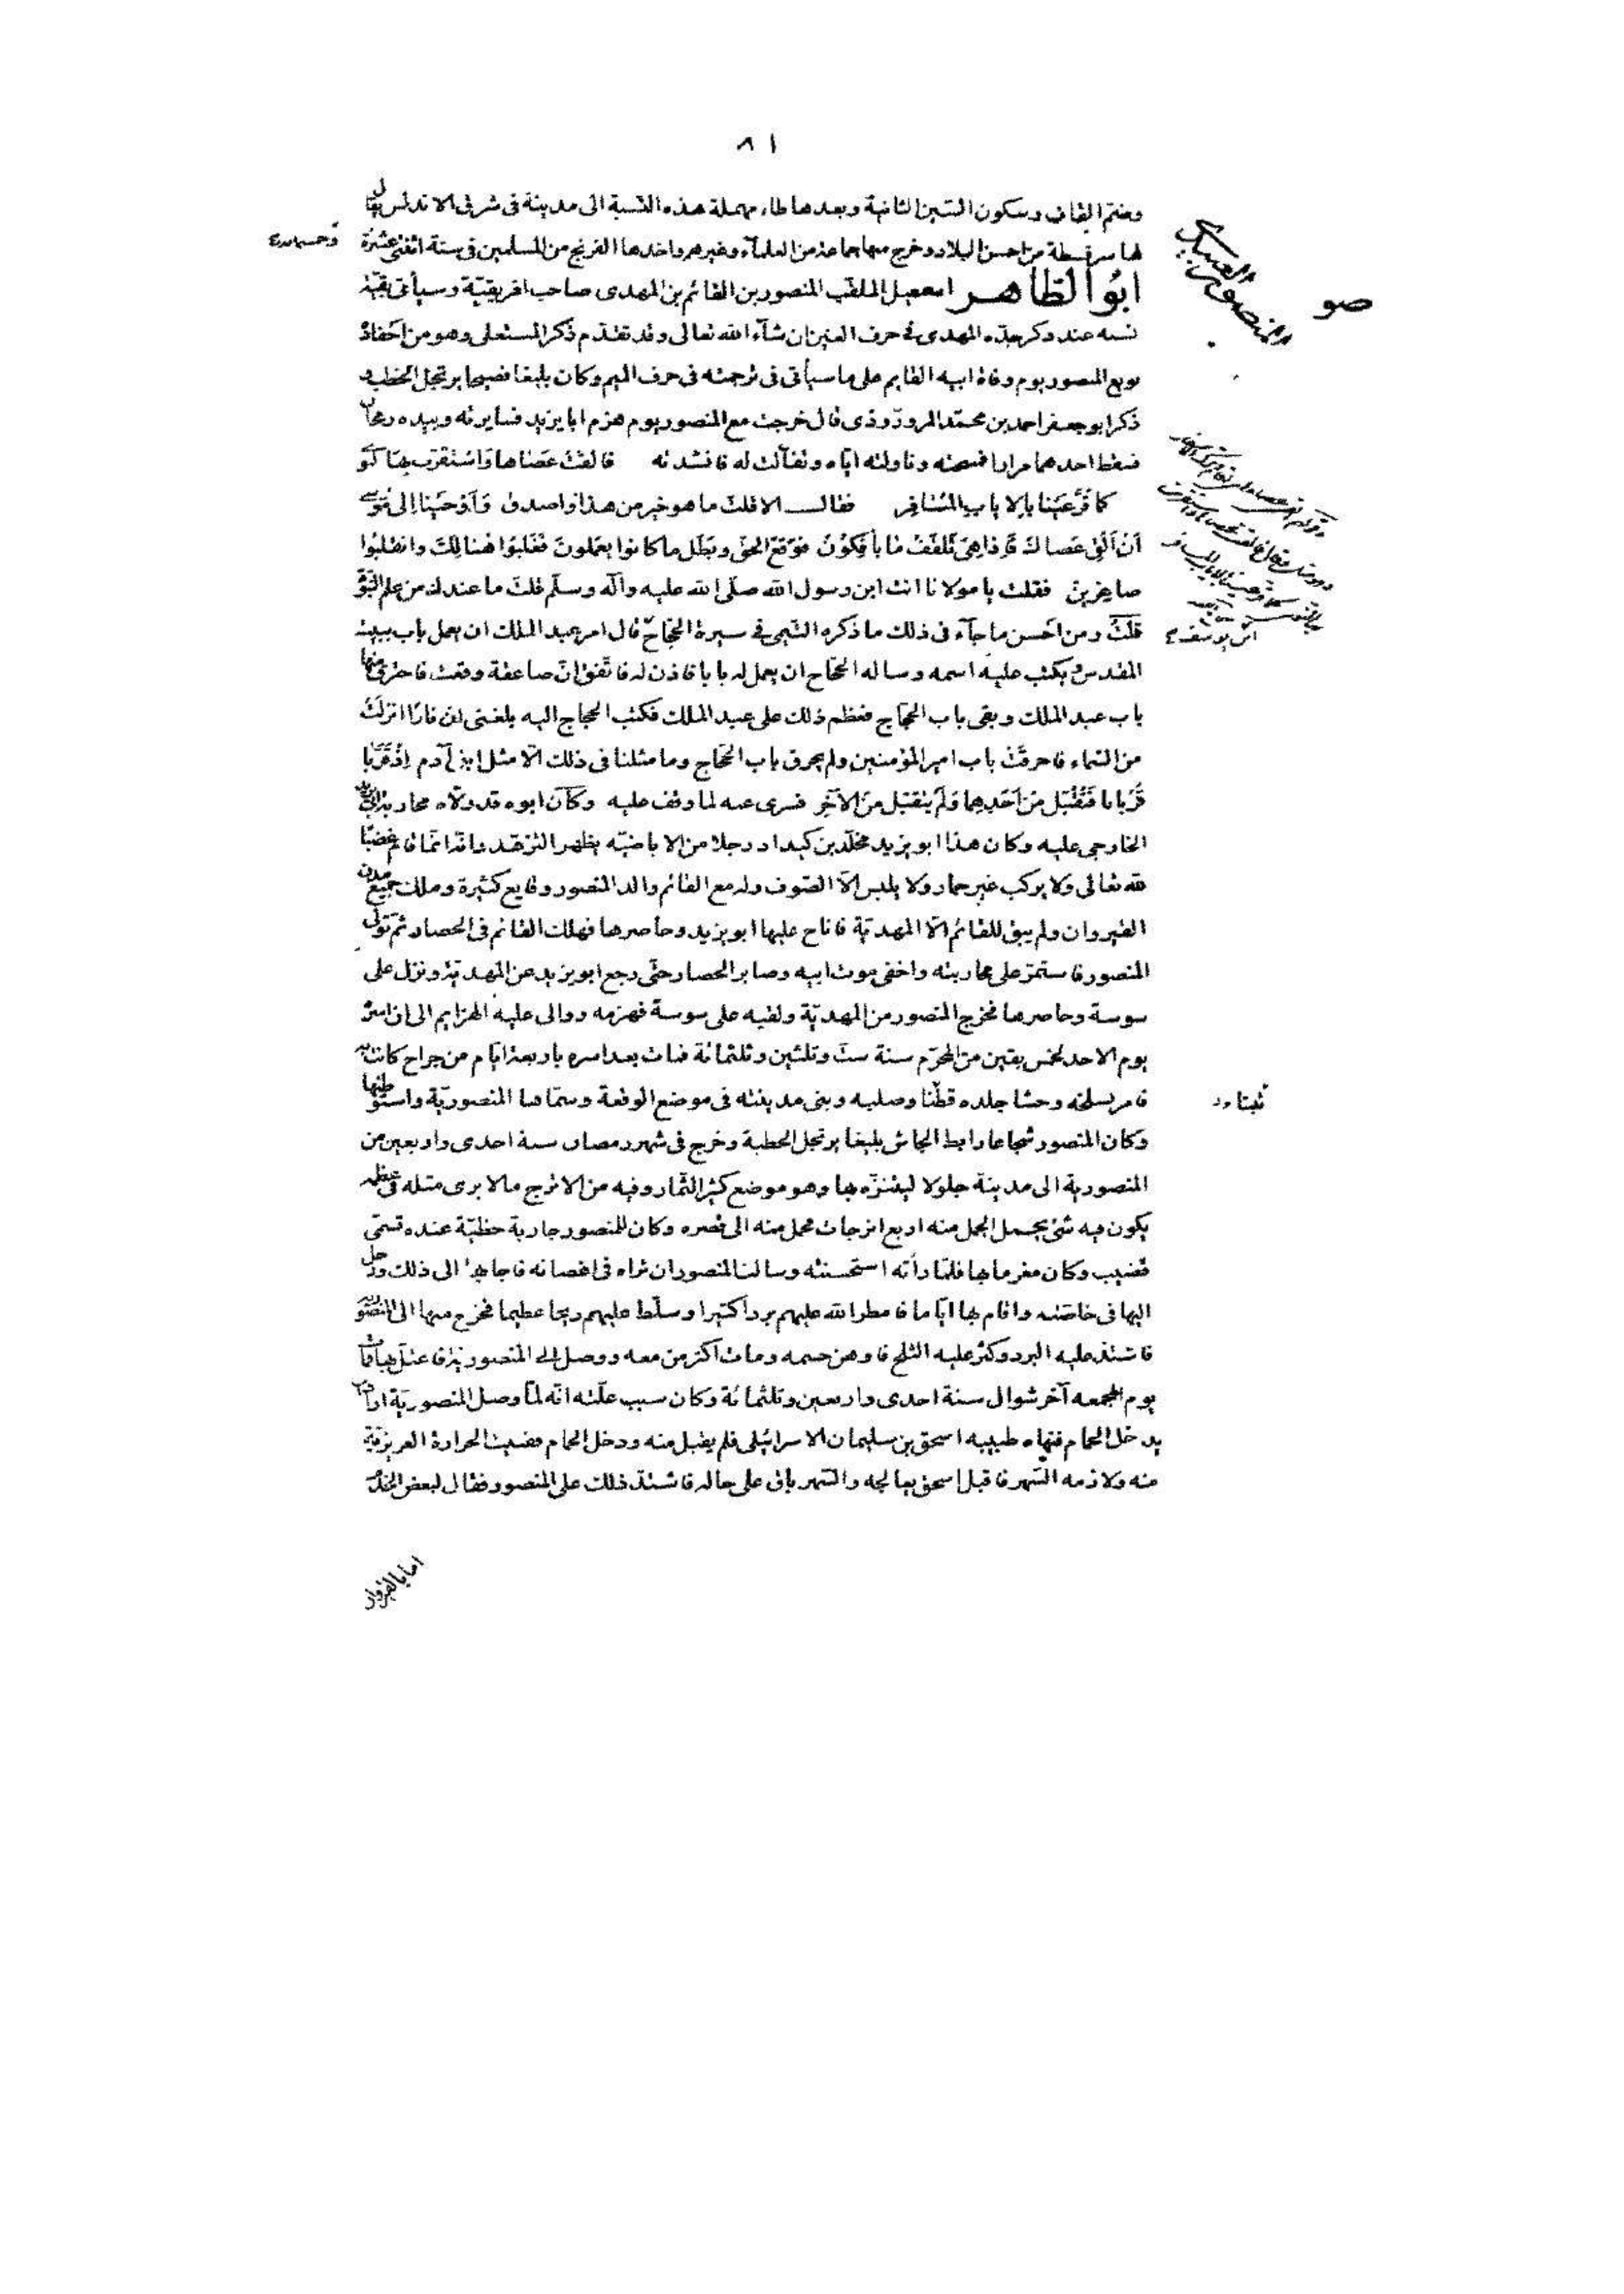 ٨١
وضم القاف وسكون السين الثانية وبعدها طاء مهملة هذه النسبة الى مدينة فى شرقى الاندلس يقال
لها سرقسطة من احسن البلاد وخرج منها جماعة من العلماء وغيرهم واخذها الفرنج من المسلمين فى سنة اثنتى عشرة
وخمسمائة
ابو الطاهر اسمعيل الملقب المنصور بن القائم بن المهدى صاحب افريقية وسيأتى بقية
نسبه عند ذكر جده المهدى فى حرف العين ان شاء الله تعالى وقد تقدم ذكر المستعلى وهو من احفاد
بويع المنصور يوم وفاة ابيه القايم على ما سيأتى فى ترجمته فى حرف الميم وكان بليغا فصيحا يرتجل الخطب
ذكر ابو جعفر احمد بن محمد المروروذى قال خرجت مع المنصور يوم هزم ابا يزيد فسايرته وبيده رمحان
فسقط احدهما مرارا فمسحته وناولته اياه وتفألت له فانشدته فالقت عصاها واستقرت بها النوى
كما قر عينا بالاياب المسافر فقال الا قلت ما هو خير من هذا واصدق وأوحينا إلى موسى
أن ألق عصاك فإذا هى تلقف ما يأفكون فوقع الحق وبطل ما كانوا يعملون فغلبوا هنالك وانقلبوا
صاغرين فقلت يا مولانا انت ابن رسول الله صلى الله عليه وآله وسلم قلت ما عندك من علم النبوة
قلت ومن احسن ما جاء فى ذلك ما ذكره التيمى فى سيرة الحجاج قال امر عبد الملك ان يعمل باب ببيت
المقدس ويكتب عليه اسمه وساله الحجاج ان يعمل له بابا فاذن له فاتفق ان صاعقة وقعت فاحترق منها
باب عبد الملك وبقى باب الحجاج فعظم ذلك على عبد الملك فكتب الحجاج اليه بلغنى ان نارا انزلت
من السماء فاحرقت باب امير المؤمنين ولم يحرق باب الحجاج وما مثلنا فى ذلك الا مثل ابنى آدم إذ قربا
قربانا فتقبل من أحدهما ولم يتقبل من الآخر فسرى عنه لما وقف عليه وكان ابوه قد ولاه محاربة ابى يزيد
الخارجى عليه وكان هذا ابو يزيد مخلد بن كيداد رجلا من الاباضية يظهر التزهد وانه انما قام غضبا
لله تعالى ولا يركب غير حمار ولا يلبس الا الصوف وله مع القائم والد المنصور وقايع كثيرة وملك جميع مدن
القيروان ولم يبق للقائم الا المهدية فاناخ عليها ابو يزيد وحاصرها فهلك القائم فى الحصار ثم تولى
المنصور فاستمر على محاربته واخفى موت ابيه وصابر الحصار حتى رجع ابو يزيد عن المهدية ونزل على
سوسة وحاصرها فخرج المنصور من المهدية ولقيه على سوسة فهزمه ووالى عليه الهزايم الى ان اسره
يوم الاحد لخمس بقين من المحرم سنة ست وثلثين وثلثمائة فمات بعد اسره باربعة ايام من جراح كانت به
فامر بسلخه وحشا جلده قطنا وصلبه وبنى مدينته فى موضع الوقعة وسماها المنصورية واستوطنها
وكان المنصور شجاعا رابط الجاش بليغا يرتجل الخطبة وخرج فى شهر رمضان سنة احدى واربعين من
المنصورية الى مدينة جلولا ليتنزه بها وهو موضع كثير الثمار وفيه من الاترج ما لا يرى مثله فى عظمه
يكون فيه شئ يحمل الجمل منه اربع اترجات فحمل منه الى قصره وكان للمنصور جارية حظية عنده تسمى
قضيب وكان مغرما بها فلما رأته استحسنته وسالت المنصور ان تراه فى اغصانه فاجابها الى ذلك ورحل
اليها فى خاصته واقام بها اياما فامطر الله عليهم بردا كثيرا وسلط عليهم ريحا عظيما فخرج منها الى المنصورية
فاشتد عليه البرد وكثر عليه الثلج فاوهن جسمه ومات اكثر من معه ووصل الى المنصورية فاعتل بها فمات
يوم الجمعة آخر شوال سنة احدى واربعين وثلثمائة وكان سبب علته انه لما وصل المنصورية اراد ان
يدخل الحمام فنهاه طبيبه اسحق بن سليمان الاسرائيلى فلم يقبل منه ودخل الحمام ففنيت الحرارة الغريزية
منه ولازمه السهر فاقبل اسحق يعالجه والسهر باق على حاله فاشتد ذلك على المنصور فقال لبعض الخدم
اما بالقيروان
المنصور العبيدى